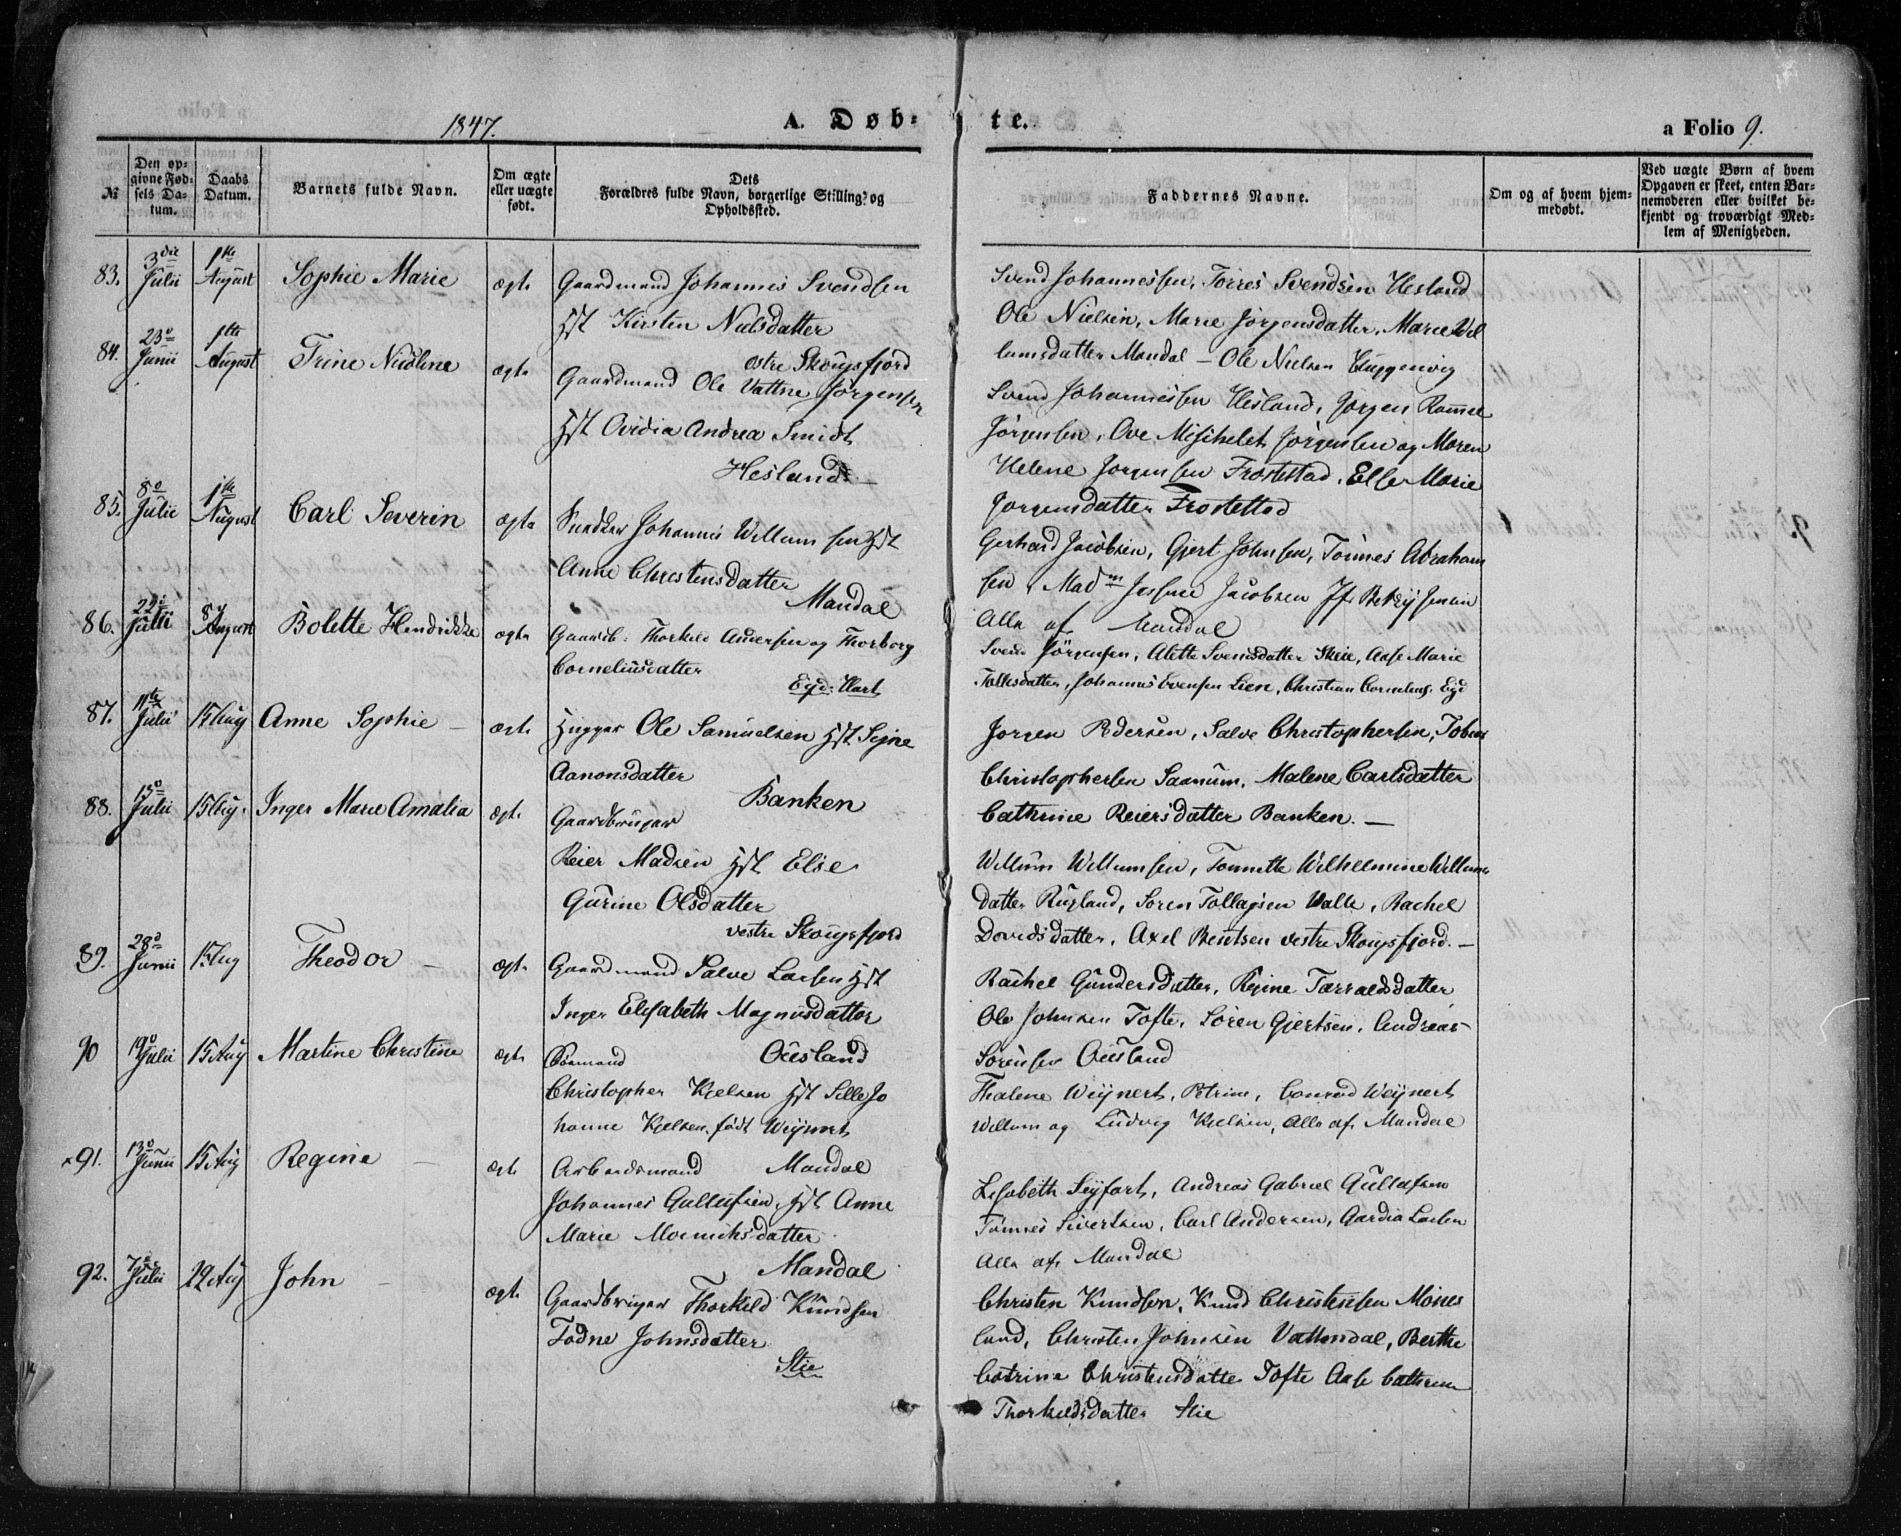 1847.
A. Døb-
te.
a Folio 9.
№
Den op-
givne Fød-
sels Da-
tum.
Daabs
Datum.
Barnets fulde Navn.
Om ægte
eller uægte
født.
Dets
Forældres fulde Navn, borgerlige Stilling og
Opholdssted.
Faddernes Navne.
Om og af hvem hjem-
medøbt.
Ved uægte Børn af hvem
Opgaven er skeet, enten Bar-
nemoderen eller hvilket be-
kjendt og troværdigt Med-
lem af Menigheden.
83.
3die
Julii
1ste
August
Sophie Marie
ægte
Gaardmand Johannis Svendsen
Hst Kirsten Nielsdatter
østre Skougsfjord
Svend Johannessen, Torres Svendsen Hesland
Ole Nielsen, Marie Jørgensdatter, Marie Wil
lumsdatter Mandal — Ole Nielsen
84.
23de
Junii
1ste
August
Trine Nicoline
ægte
Gaardmand Ole Vattne Jørgensen
Hst Ovidia Andrea Smidt
Hesland —
Svend Johannessen Hesland, Jørgen
Jørgensen, Ove Jørgensen og Maren
Helene Jørgensen Frostestad, Else Marie
Jørgensdatter Frostestad
85.
8de
Julii
1ste
August
Carl Severin
ægte
Snedker Johannis Willumsen Hst
Anne Christensdatter
Mandal
Gerhard Jacobsen, Gjert Johnsen, Tønnes Abraham
sen, Madm Jacobsen Jfr Betzy Jensen
Alle af Mandal
86.
22de
Julii
8de
August
Bolette Hendrikke
ægte
Gaardb: Thorkild Andersen og Thorborg
Corneliusdatter
Egd: Hart
Svend Jørgensen, Alette Svendsdatter Skeie, Aase Marie
Falksdatter, Johannes Evensen Lien, Christian Cornelius. Egd
87.
11te
Julii
15 Aug
Anne Sophie —
ægte
Hugger Ole Samuelsen Hst Signe
Aanonsdatter
Banken
Jørgen Pedersen, Salve Christophersen, Tobias
Christophersen Saanum, Malene Carlsdatter
Cathrine Reiersdatter Banken. —
88.
15de
Julii
15 Aug.
Inger Marie Amalia
ægte
Gaardbruger
Reier Madsen Hst Else
Gurine Olsdatter
vestre Skougsfjord
Willum Willumsen, Tonnette Wilhelmine Willums
datter Rugland, Søren Tollagsen Valle, Rachel
Davidsdatter, Axel Bentsen vestre Skougsfjord. —
89.
28de
Junii
15 Aug
Theodor —
ægte
Gaardmand Salve Larsen Hst
Inger Elisabeth Magnusdatter
Ouesland
Rachel Gundersdatter, Regine Tarraldsdatter
Ole Johnsen Tofte, Søren Gjertsen, Andreas
Sørensen Ouesland
90
19de
Julii
15 Aug
Martine Christine
ægte
Christopher Kielsen Hst Sille Jo
hanne Kielsen født Weynert
Mandal
Thalene Weynert, Petrine, Conrad Weynert
Willum og Ludvig Kielsen, Alle af Mandal
91.
13de
Junii
15 Aug
Regine —
ægte
Arbeidsmand
Johannes Gullufsen, Hst Anne
Marie datter
Mandal
Lisabeth Seyfart, Andreas Gabriel Gullufsen
Tønnes Sivertsen, Carl Andersen, Gardia Larsen
Alle af Mandal
92.
7de
Julii
22 Aug
John —
ægte
Gaardbruger Thorkild Knudsen
Todne Johnsdatter
Stie
Christen Knudsen, Knud Christensen Mones
land, Christen Johnsen Vatnedal, Berthe
Catrine Christensdatter Tofte Aase Cathrine
Thorkildsdatter Stie